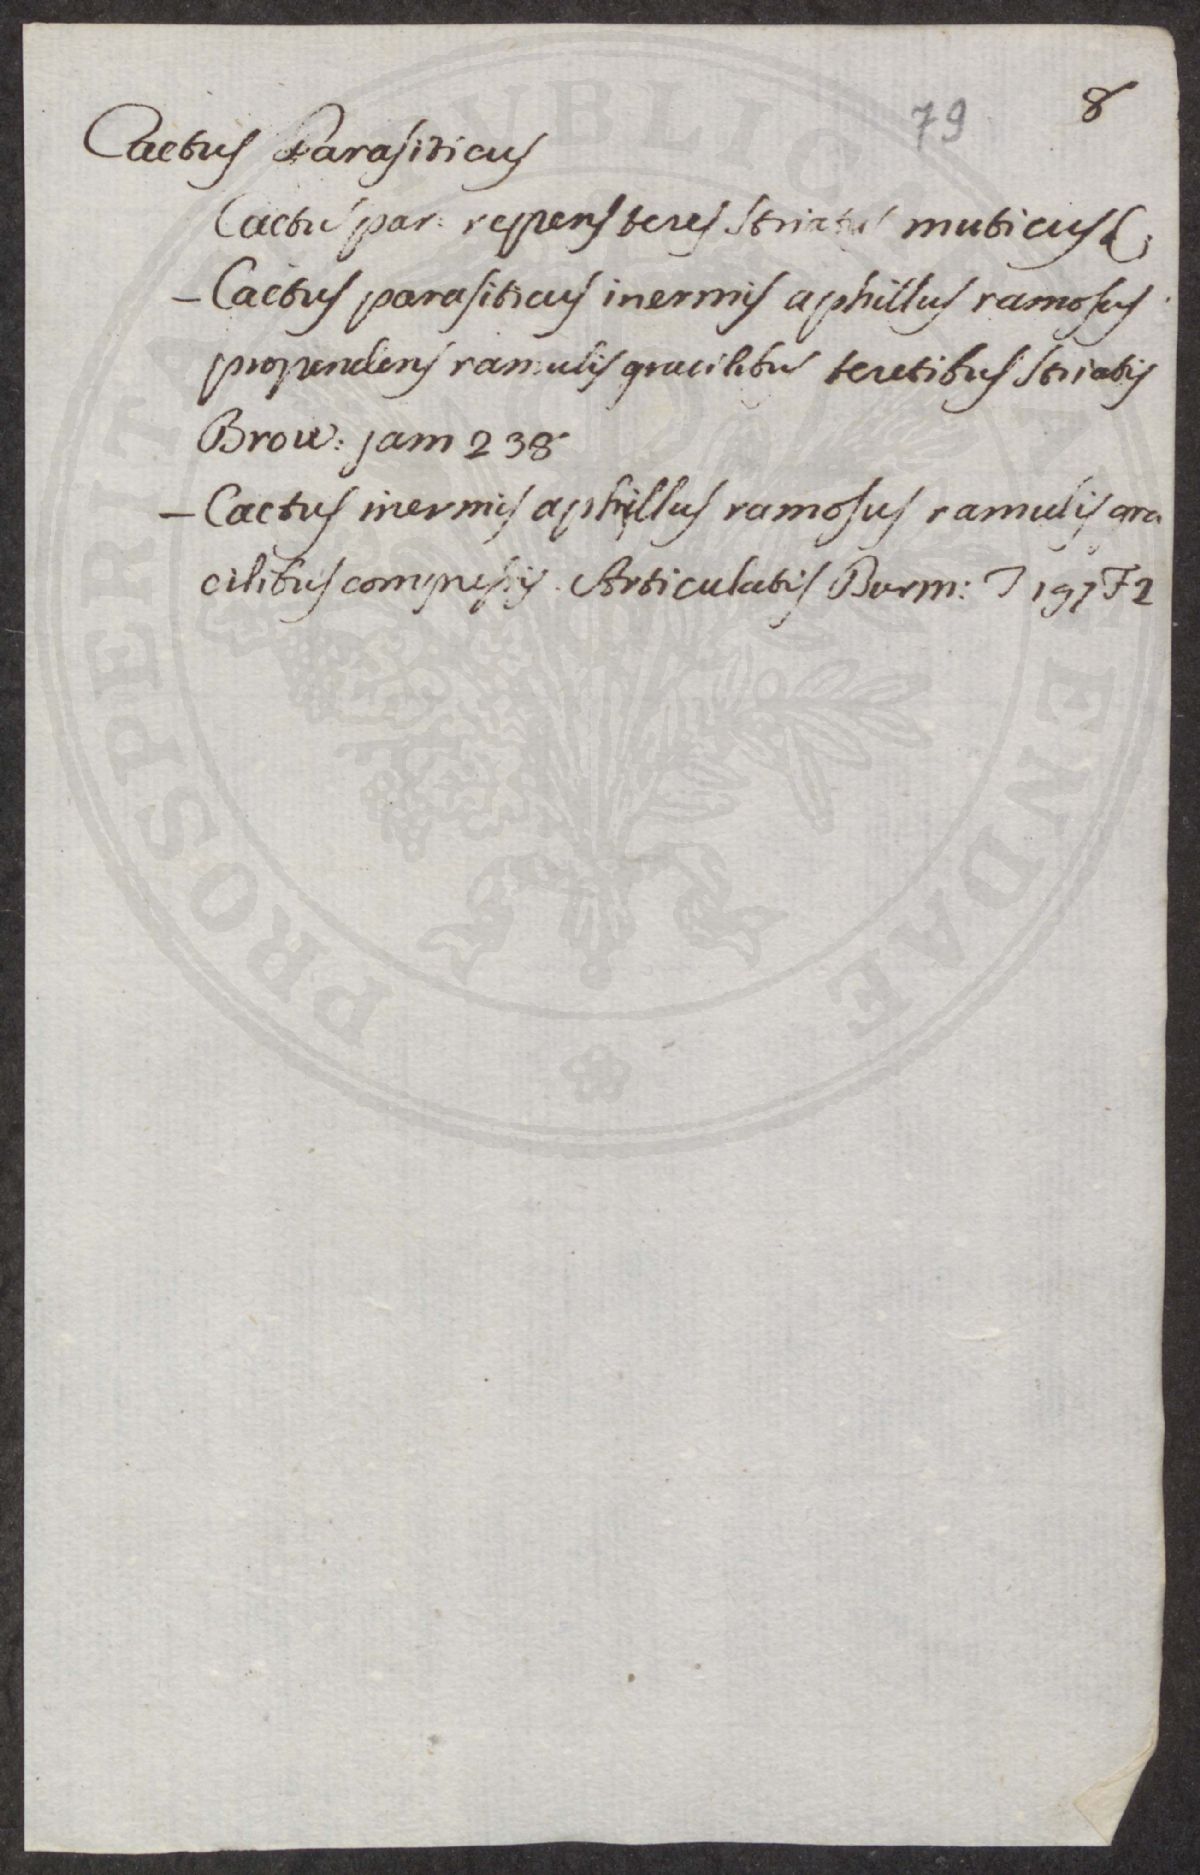 79 8
Cactus Parasiticus
Cactus par: repens teres striatus muticus L;
– Cactus parasiticus inermis aphillus ramosus
propendens ramulis gracilibus teretibus striatis
Brow: jam 238
– Cactus inermis aphillus ramosus ramulis gra
cilibus compressis Articulatis Burm: T 197 F2
PROSPERITATI PUBLICAE AUGENDAE